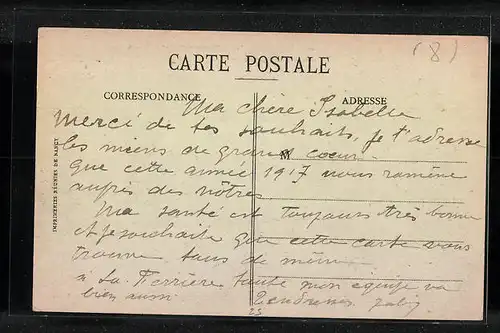 (8)
CARTE POSTALE
CORRESPONDANCE
ADRESSE
Ma chère Isabelle
Merci de tes souhaits, je t'adresse
les miens de grand cœur
M
que cette année 1917 nous ramène
auprès des nôtres
Ma santé est toujours très bonne
et je souhaite que cette carte vous
trouve tous de même
à La Ferrière toute mon équipe va
bien aussi
Tendresses
IMPRIMERIES RÉUNIES DE NANCY